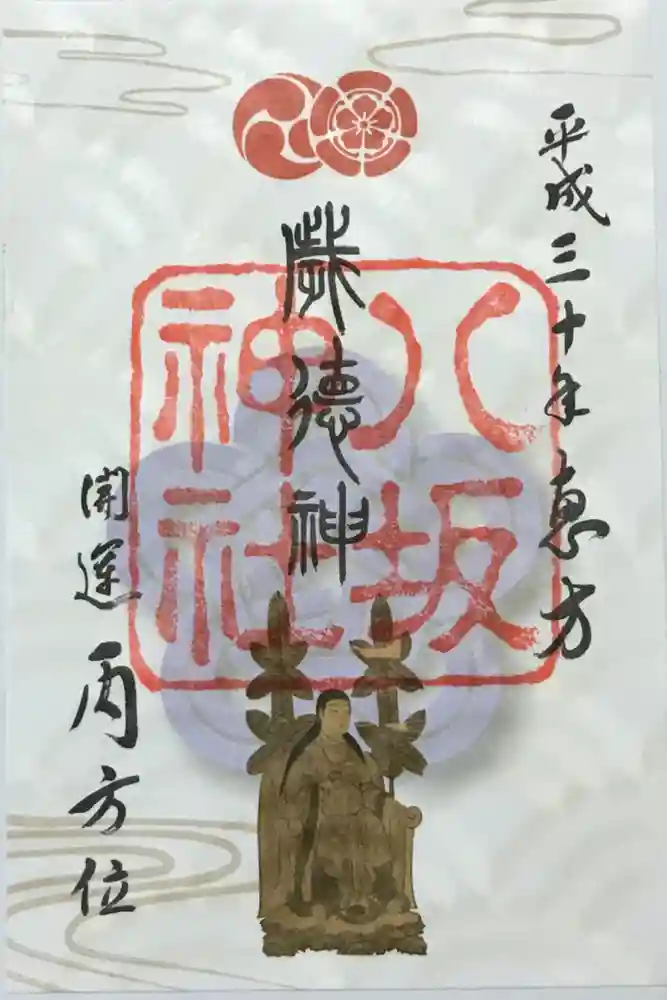 平成三十年恵方
歳徳神
八坂
神社
開運丙方位